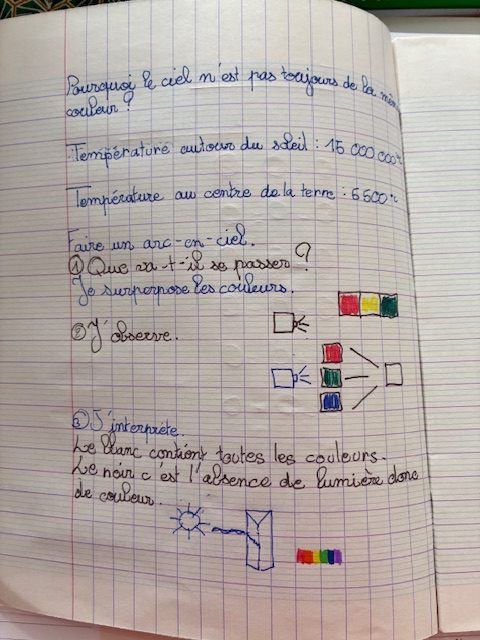 Pourquoi le ciel n'est pas toujours de la même
couleur ?
Température autour du soleil : 15 000 000°c
Température au centre de la terre : 6500°c
Faire un arc-en-ciel.
① Que va-t-il se passer ?
Je surperpose les couleurs.
② J'observe.
③ J'interprète.
Le blanc contient toutes les couleurs.
Le noir c'est l'absence de lumière donc
de couleur.